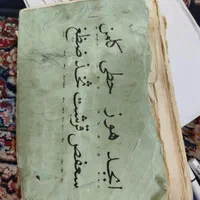 ابجد هوز حطی کلمن
سعفص قرشت ثخذ ضظغ